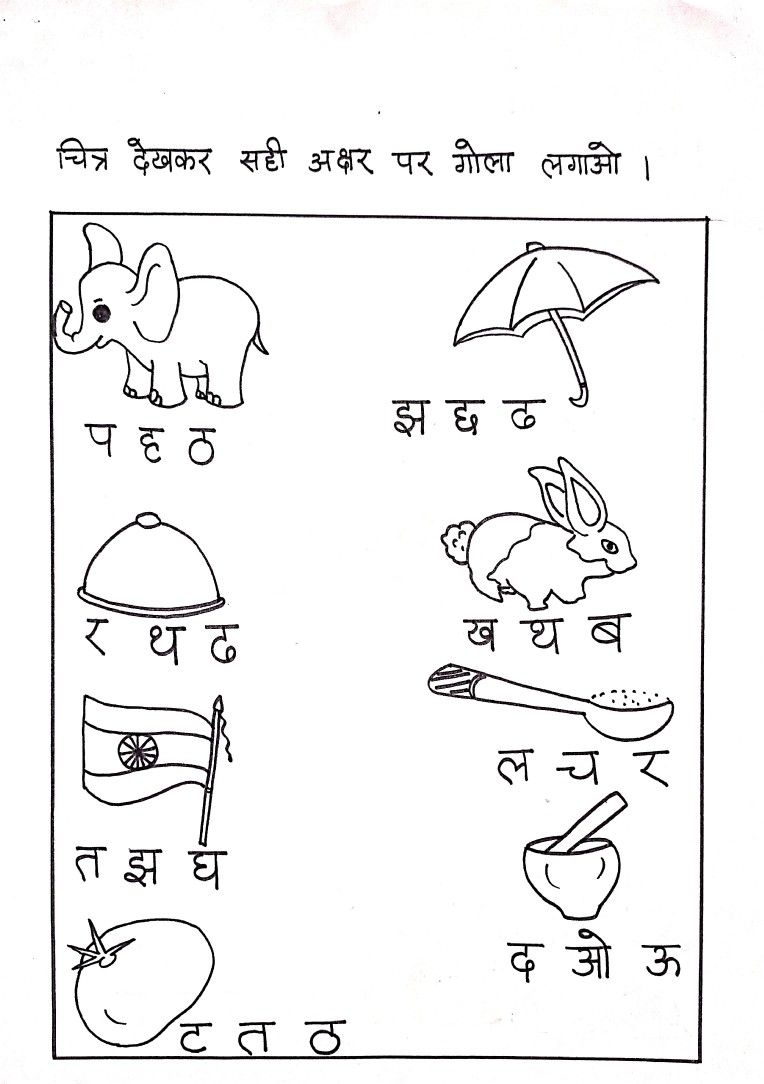 चित्र देखकर सही अक्षर पर गोला लगाओ ।
प ह ठ
झ छ ढ
र थ ढ
ख थ ब
ल च र
त झ घ
द ओ ऊ
ट त ठ